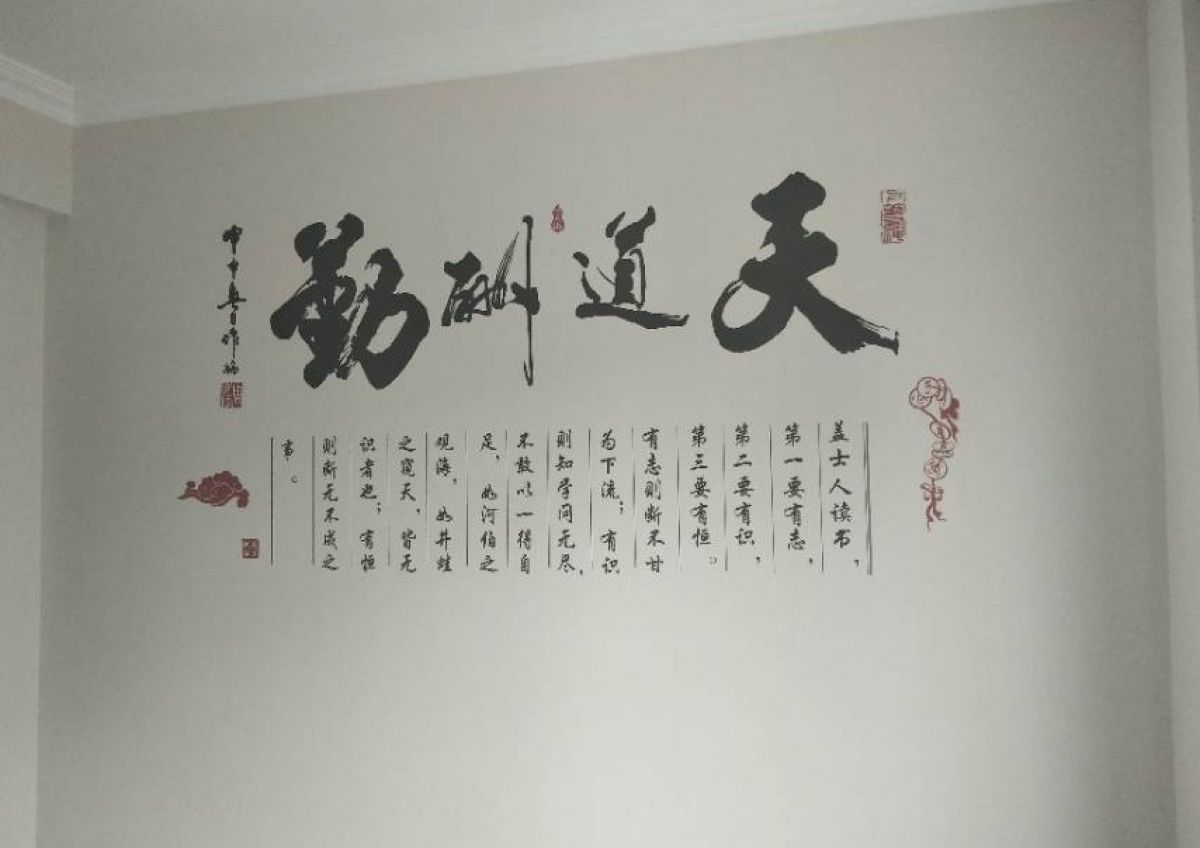 天道酬勤
盖士人读书，
第一要有志，
第二要有识，
第三要有恒。
有志则断不甘
为下流；有识
则知学问无尽，
不敢以一得自
足，如河伯之
观海，如井蛙
之窥天，皆无
识者也；有恒
则断无不成之
事。